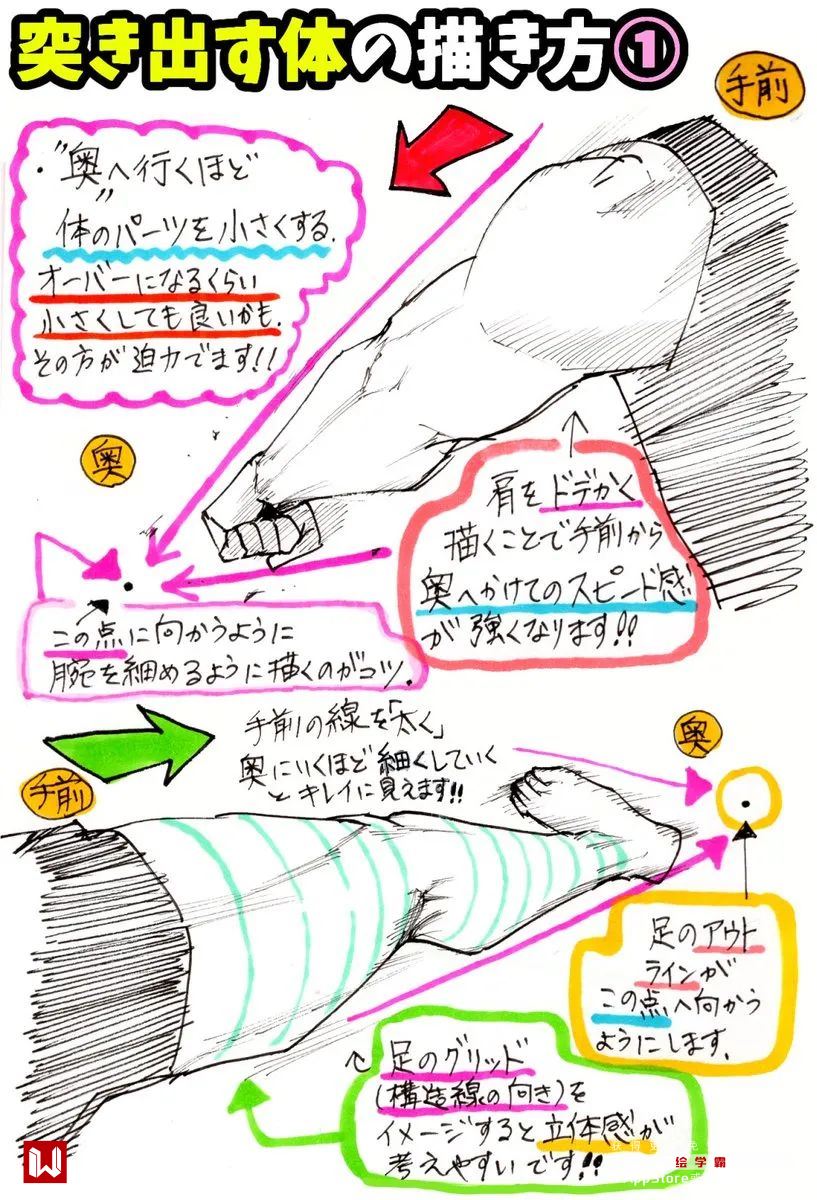 突き出す体の描き方①
手前
・"奥へ行くほど"
体のパーツを小さくする.
オーバーになるくらい
小さくしても良いかも.
その方が迫力でます!!
奥
肩をドデかく
描くことで手前から
奥へかけてのスピード感
が強くなります!!
この点に向かうように
腕を細めるように描くのがコツ.
手前の線を「太く」
奥にいくほど細くしていく
とキレイに見えます!!
奥
手前
足のアウト
ラインが
この点へ向かう
ようにします.
足のグリッド
(構造線の向き)を
イメージすると立体感が
考えやすいです!!
绘学霸
AppStore